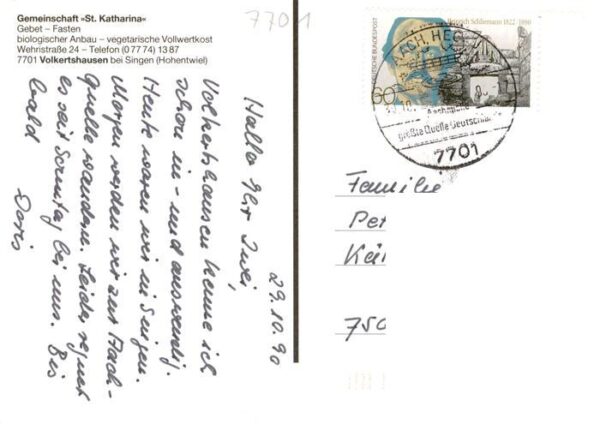 Gemeinschaft »St. Katharina«
Gebet – Fasten
biologischer Anbau – vegetarische Vollwertkost
Wehristraße 24 – Telefon (0 77 74) 13 87
7701 Volkertshausen bei Singen (Hohentwiel)
7701
29.10.90
Hallo Ihr Zwei,
Volkertshausen kenne ich
schon in- und auswendig.
Heute waren wir in Singen.
Morgen werden wir zur Aach-
quelle wandern. Leider regnet
es seit Sonntag bei uns. Bis
bald
Doris
Heinrich Schliemann 1822-1890
DEUTSCHE BUNDESPOST
60
AACH, HEG
größte Quelle Deutschla
7701
Familie
Pet
Kär
750